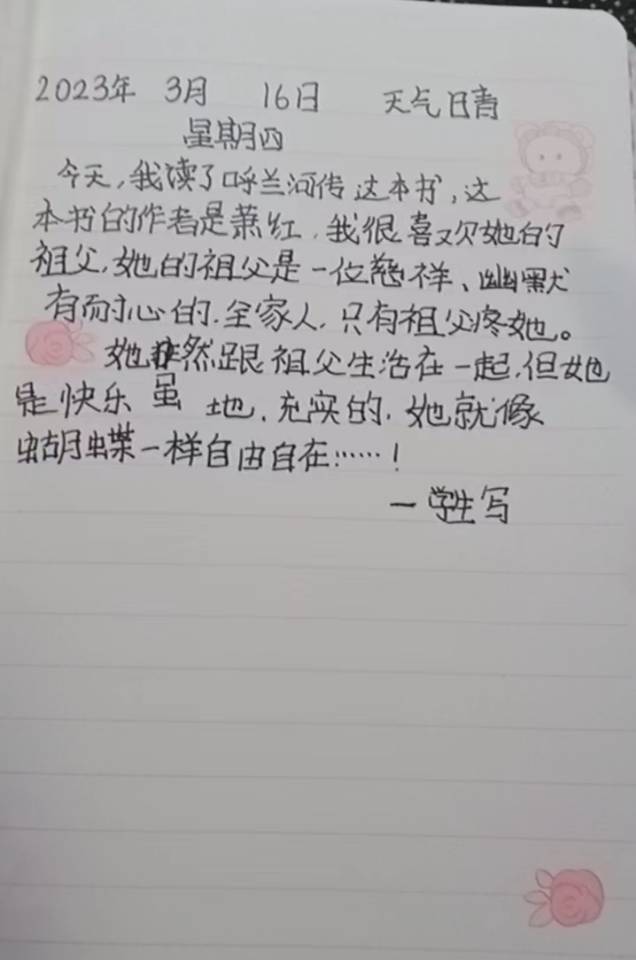 2023年 3月 16日 天气晴
星期四
今天,我读了呼兰河传这本书,这
本书的作者是萧红,我很喜欢她的
祖父,她的祖父是一位慈祥、幽默
有耐心的.全家人,只有祖父疼她。
她然跟祖父生活在一起,但她
是快乐 虽 地,充实的,她就像
蝴蝶一样自由自在……!
一学生写